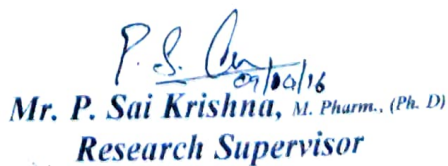 P. S.
Mr. P. Sai Krishna, M. Pharm., (Ph. D)
Research Supervisor